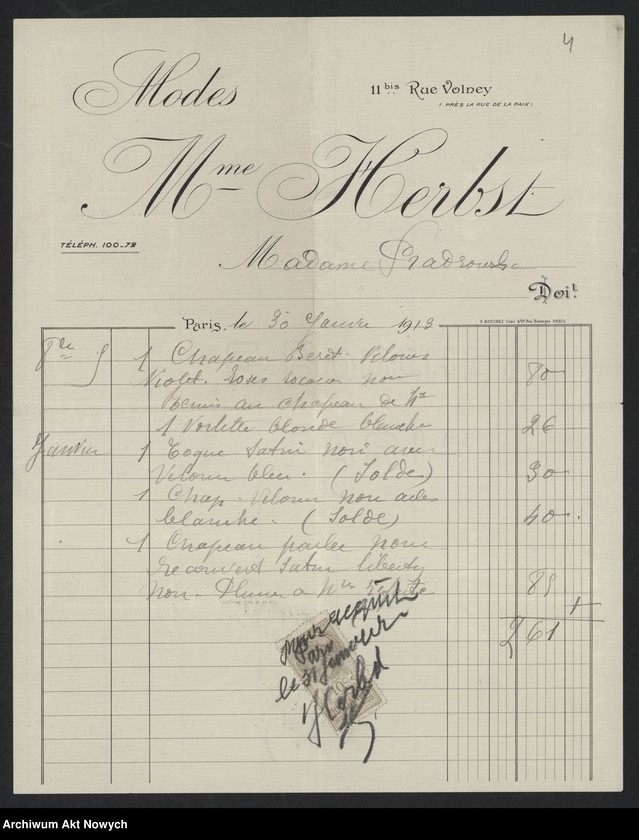 4
Modes
11 bis Rue Volney
( PRÈS LA RUE DE LA PAIX )
Mme Herbst
TÉLÉPH. 100-72
Madame
Doit
Paris, le 30 Janvier 1913
8bre 5 1 Chapeau Beret. Velours
Violet. Roses noir 80
au chapeau de Mr
1 Voilette blonde blanche 26
Janvier 1 Toque Satin noir avec
Velours bleu. (Solde) 30
1 Chap. Velours noir ailes
blanche. (Solde) 40.
1 Chapeau paille noir
recouvert Satin liberty
noir. Plume a Mme 85
261
pour acquit
Paris
le 31 Janvier
Herbst
Archiwum Akt Nowych